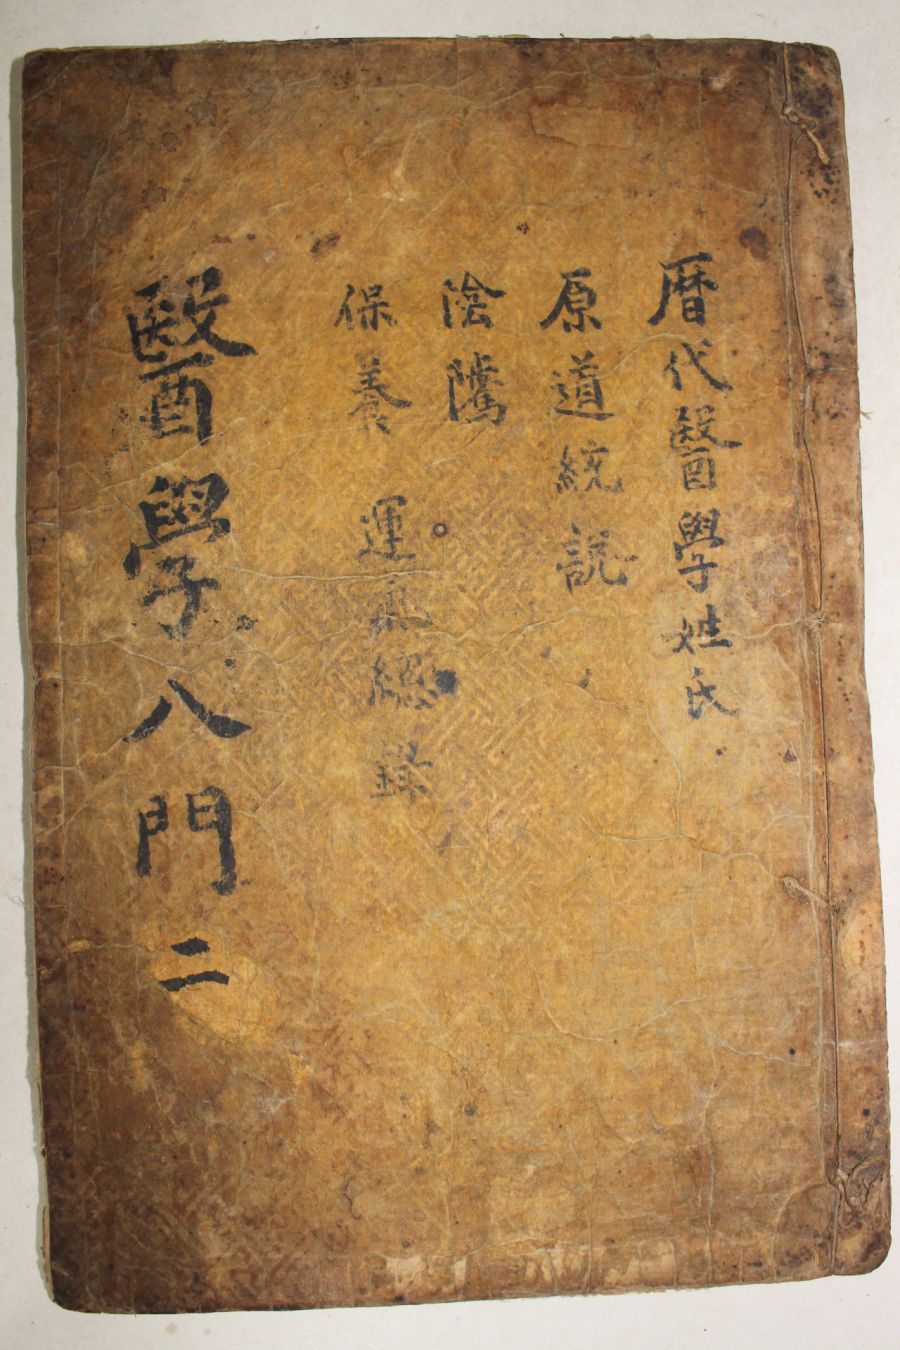 曆代醫學姓氏
原道統說
陰騭
保養 運氣總錄
醫學八門 二